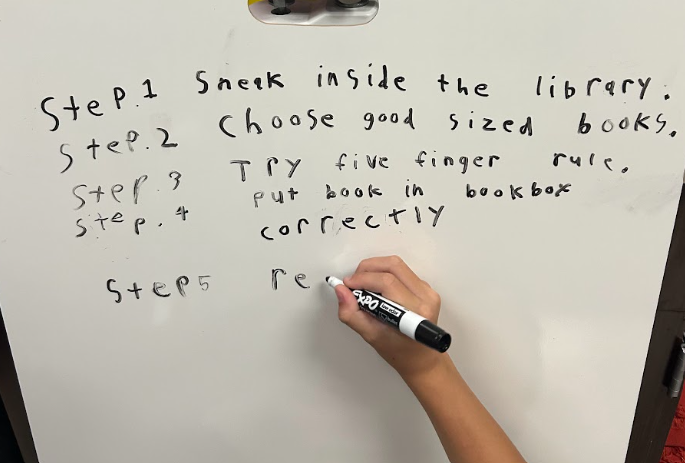 Step.1 Sneak inside the library.
Step.2 Choose good sized books.
Step.3 Try five finger rule.
Step.4 put book in bookbox
correctly
Step5 re
EXPO